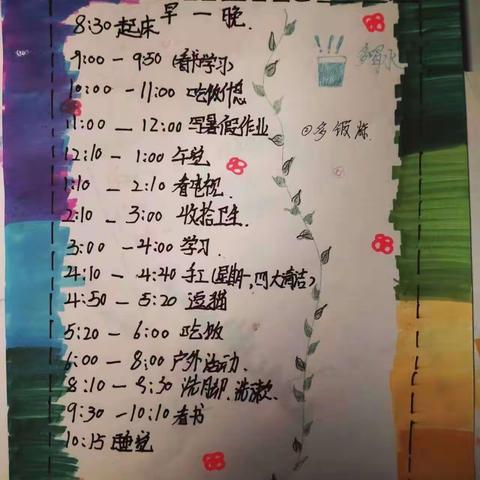 早一晚.
8:30 起床
多喝水
9:00 — 9:50 (看书学习)
10:00 — 11:00 吃饭休息
11:00 — 12:00 写暑假作业
①多锻炼
12:10 — 1:00 午觉
1:10 — 2:10 看电视.
2:10 — 3:00 收拾卫生
3:00 — 4:00 学习
4:10 — 4:40 手工(星期一,四大清洁)
4:50 — 5:20 逗猫
5:20 — 6:00 吃饭
6:00 — 8:00 户外活动.
8:10 — 8:30 洗脚.洗漱.
9:30 —10:10 看书
10:15 睡觉